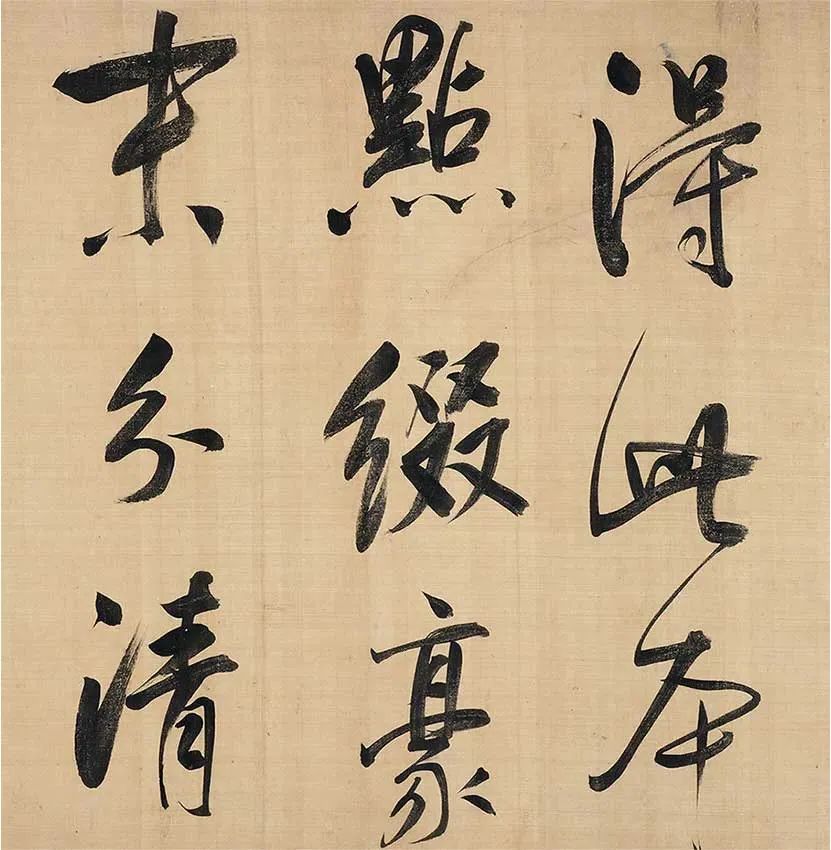 得此本
點綴豪
末分清